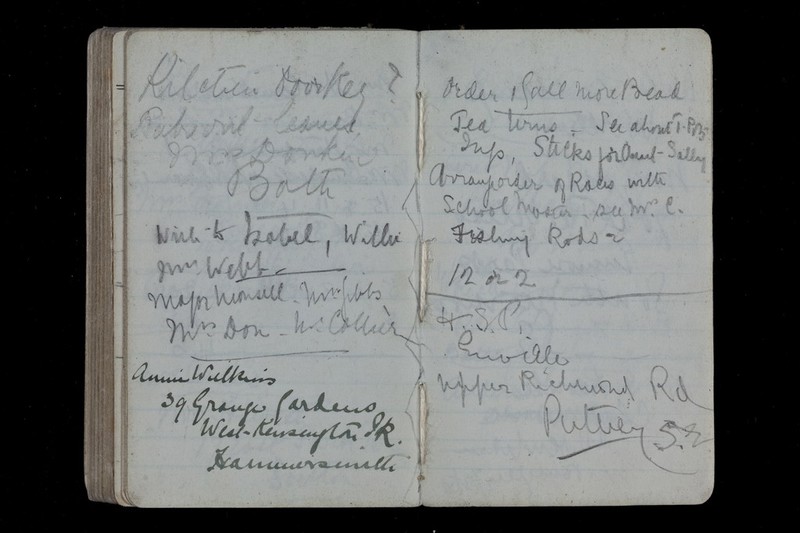 Kitchen Door Key?
leaves,
Mrs Donkin
Bath
Write to Isobel, Willie
Mrs Webb
Major Monsell. Mrs Gibbs
Mrs Don - Mrs Collier
Annie Wilkins
39 Grange Gardens
West Kensington Pk.
Hammersmith
Order 1 Gall more Bead
Tea Urns. See about T. Pots
Jugs, Sticks for Aunt-Sally
Arrange order of Races with
School Master. see Mrs C.
Fishing Rods 2
12 or 2
H.S.P.
Enville
Upper Richmond Rd
Putney S.E